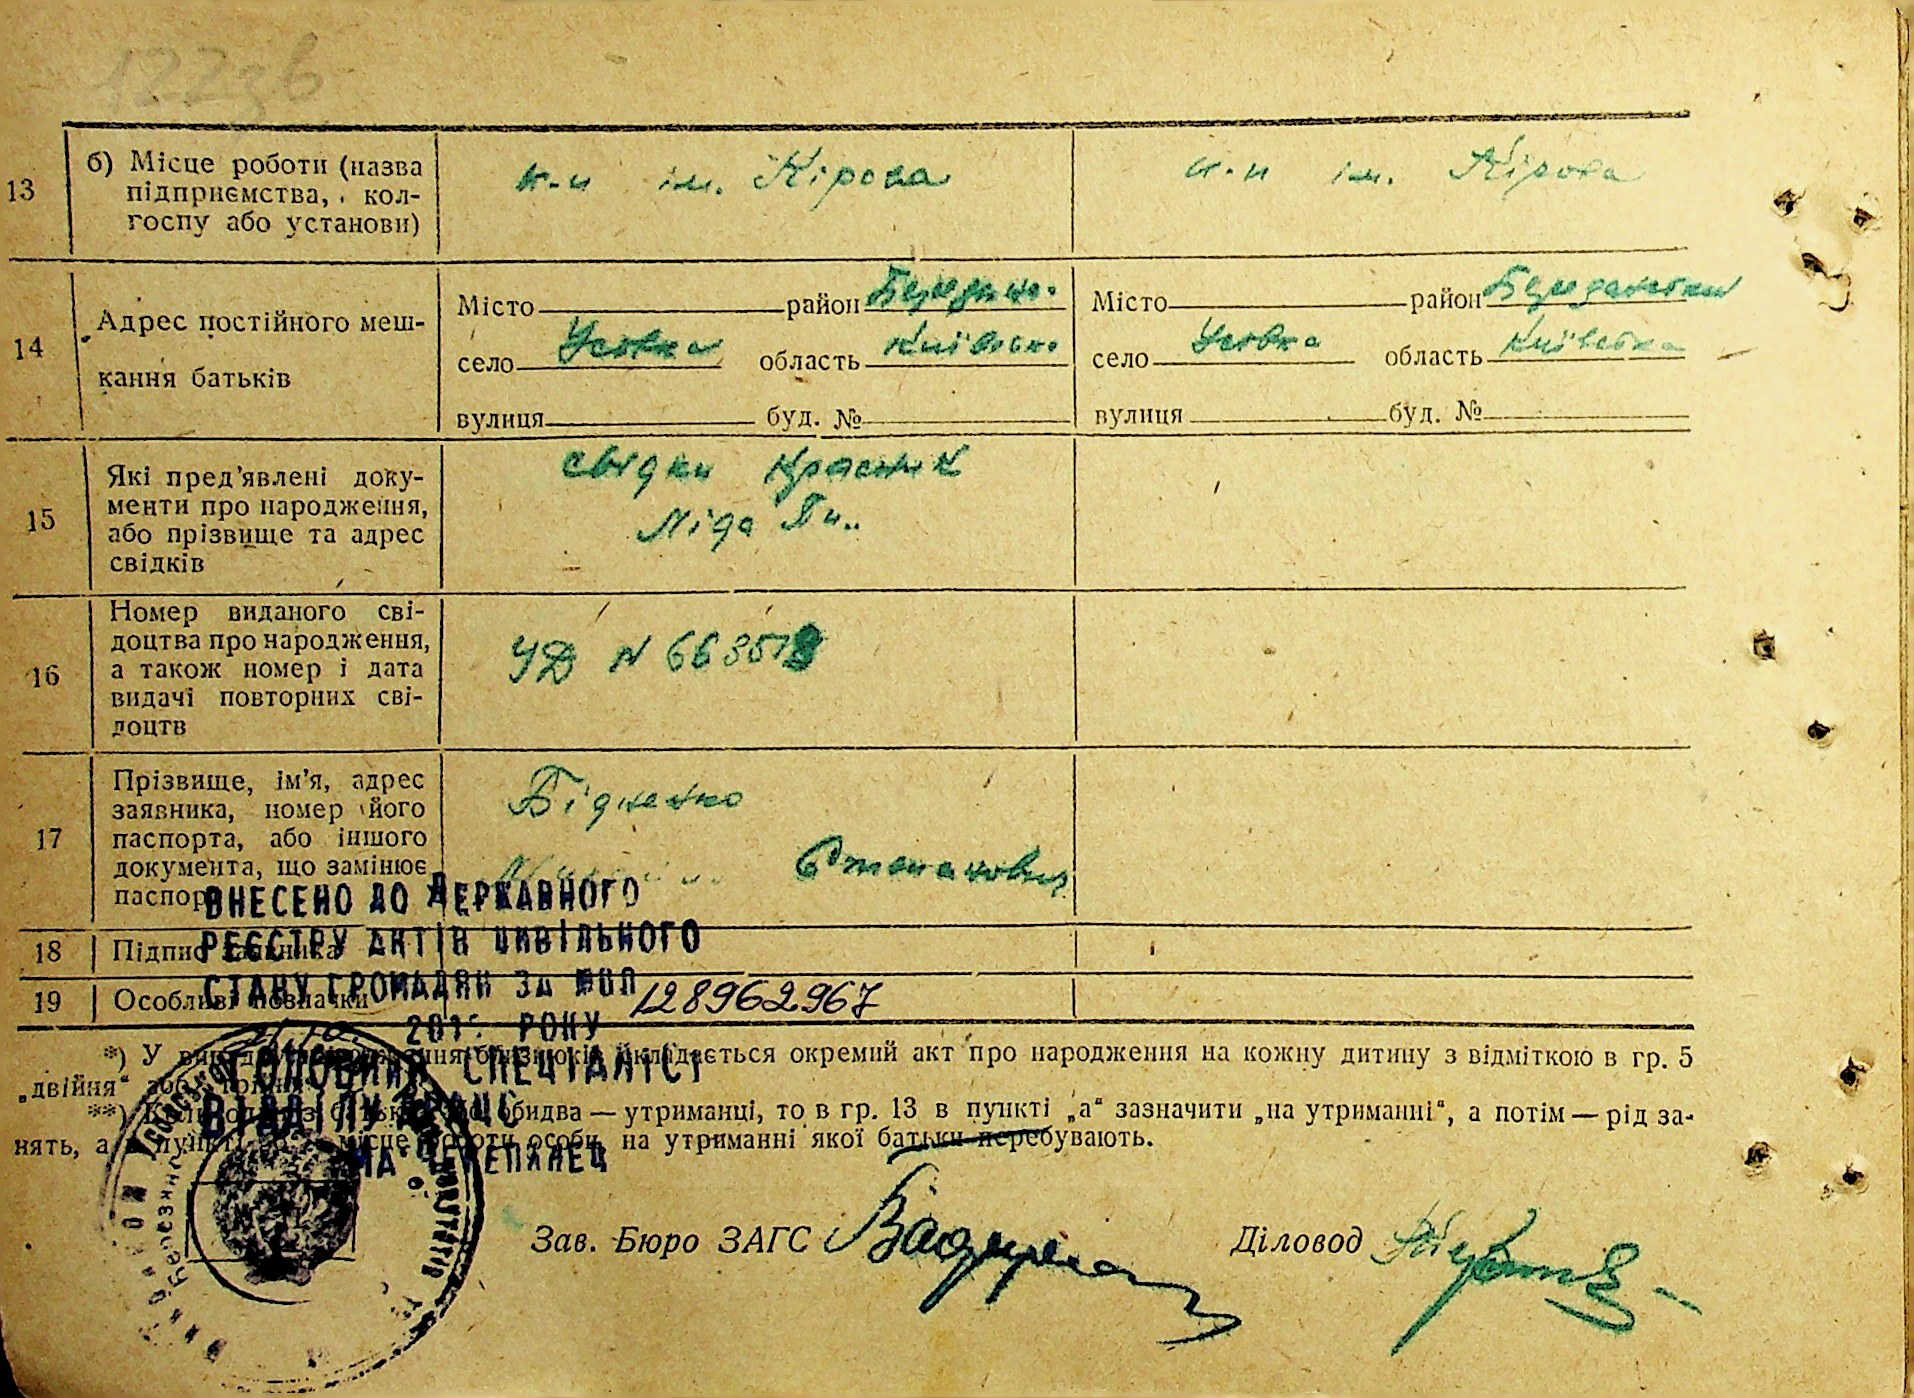 13
б) Місце роботи (назва
підприємства, кол-
госпу або установи)
к-п ім. Кірова
к-п ім. Кірова
14
Адрес постійного меш-
кання батьків
Місто район
село Усовка область Київська
вулиця буд. №
Місто район Березанський
село Усовка область Київська
вулиця буд. №
15
Які пред'явлені доку-
менти про народження,
або прізвище та адрес
свідків
свідки Красник
Ліда
16
Номер виданого сві-
доцтва про народження,
а також номер і дата
видачі повторних сві-
доцтв
УД N 66351
17
Прізвище, ім'я, адрес
заявника, номер його
паспорта, або іншого
документа, що замінює
паспор
Степанович
18
Підпис заявника
19
Особливі позначки
ВНЕСЕНО ДО ДЕРЖАВНОГО
РЕЄСТРУ АКТІВ ЦИВІЛЬНОГО
СТАНУ ГРОМАДЯН ЗА
128962967
РОКУ
ГОЛОВНИЙ СПЕЦІАЛІСТ
ВІДДІЛУ
*) У народження близнюків складається окремий акт про народження на кожну дитину з відміткою в гр. 5
„двійня“ або
**) Коли один з обидва — утриманці, то в гр. 13 в пункті „а“ зазначити „на утриманні“, а потім — рід за-
нять, а в пункті місце роботи особи, на утриманні якої батьки перебувають.
Зав. Бюро ЗАГС
Діловод